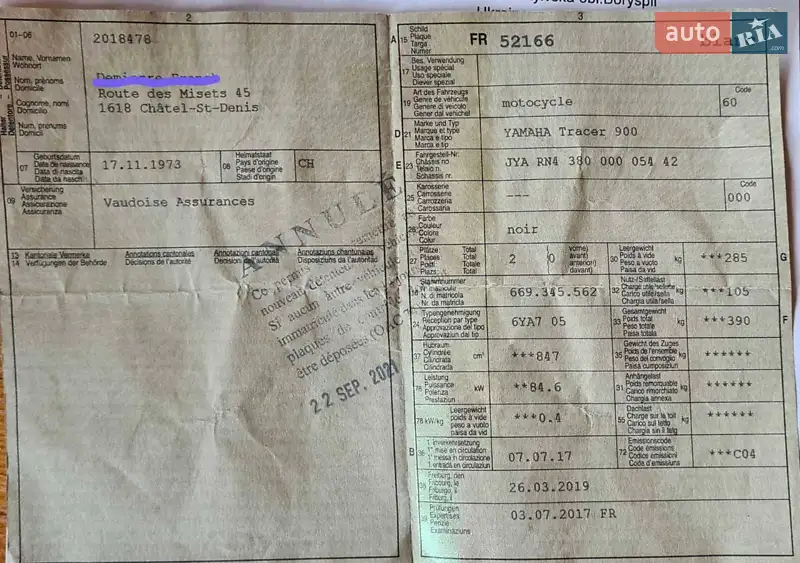 obl.Boryspil
Ukrain
2
01-06
2018478
Name, Vornamen
Wohnort
Nom, prénoms
Domicile
Cognome, nomi
Domicilio
Num, prenums
Domicil
Route des Misets 45
1618 Châtel-St-Denis
07
Geburtsdatum
Date de naissance
Data di nascita
Data da nasch.
17.11.1973
08
Heimatstaat
Pays d'origine
Paese d'origine
Stadi d'origin
CH
09
Versicherung
Assurance
Assicurazione
Assicuranza
Vaudoise Assurances
13 Kantonale Vermerke
14 Verfügungen der Behörde
Annotations cantonales
Décisions de l'autorité
Annotazioni cantonali
Decisioni dell'autorità
Annotaziuns chantunalas
Disposiziuns da l'autoritad
ANNULÉ
22 SEP. 2021
3
A 15
Schild
Plaque
Targa
Numer
FR 52166
auto RIA.com
17
Bes. Verwendung
Usage spécial
Uso speciale
Diever spezial
19
Art des Fahrzeugs
Genre de véhicule
Genere di veicolo
Gener dal vehichel
motocycle
Code
60
D 21
Marke und Typ
Marque et type
Marca e tipo
Marca e tip
YAMAHA Tracer 900
E 23
Fahrgestell-Nr.
Châssis no
Telaio n.
Schassis nr.
JYA RN4 380 000 054 42
25
Karosserie
Carrosserie
Carrozzeria
Carossaria
---
Code
000
26
Farbe
Couleur
Colore
Colur
noir
27
Plätze: Total
Places: Total
Posti: Totale
Plazs: Total
2
0
vorne)
avant)
anteriori)
davant)
30
Leergewicht
Poids à vide
Peso a vuoto
Paisa da vid
kg
***285
G
18
Stammnummer
N. di matricola
Nr. da matricla
669.345.562
32
Nutz-/Sattellast
Charge utile/sellette
Carico utile/sella
Chargia utila/sella
kg
***105
24
Typengenehmigung
Réception par type
Approvazione del tipo
Approvaziun dal tip
6YA7 05
33
Gesamtgewicht
Poids total
Peso totale
Paisa totala
kg
***390
F
37
Hubraum
Cylindrée
Cilindrata
Cilindrada
cm³
***847
35
Gewicht des Zuges
Poids de l'ensemble
Peso del convoglio
Paisa cumposiziun
kg
******
76
Leistung
Puissance
Potenza
Prestaziun
kW
**84.6
31
Anhängelast
Poids remorquable
Carico rimorchiato
Chargia annexa
kg
******
78 kW/kg
Leergewicht
poids à vide
peso a vuoto
paisa da vid
***0.4
55
Dachlast
Charge sur le toit
Carico sul tetto
Chargia sin il tetg
kg
******
B 36
1. Inverkehrsetzung
1re mise en circulation
1a messa in circolazione
1. entrada en circulaziun
07.07.17
72
Emissionscode
Code émissions
Codice emissioni
Code d'emissiuns
***C04
38
Freiburg, den
Fribourg, le
Friburgo, il
Friburg, il
26.03.2019
39
Prüfungen
Expertises
Perizie
Examinaziuns
03.07.2017 FR